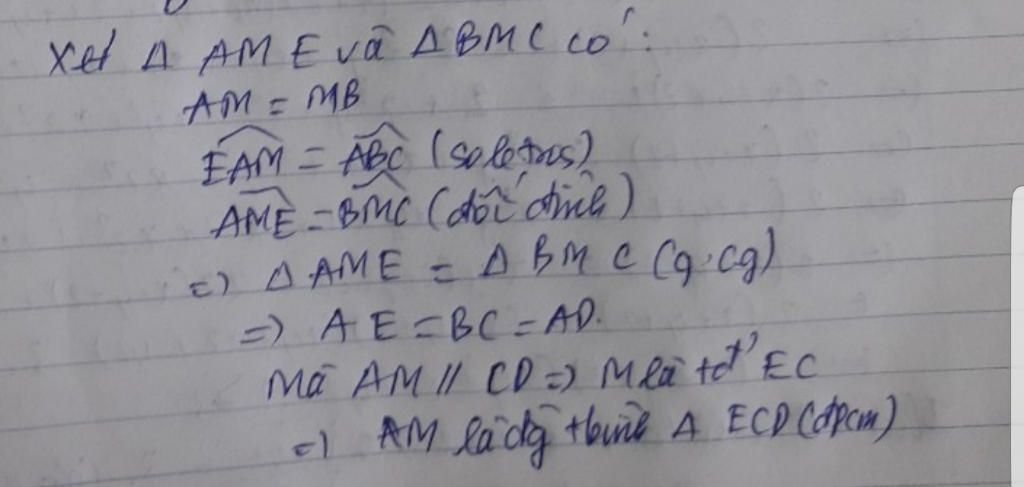 Xét Δ AME và Δ BMC có:
AM = MB
\widehat{EAM} = \widehat{ABC} (so le tros)
\widehat{AME} = \widehat{BMC} (đối đỉnh)
=) Δ AME = Δ BMC (g.cg)
=) AE = BC = AD.
Mà AM // CD =) M là tđ' EC
=) AM là đg tbình Δ ECD (đpcm)